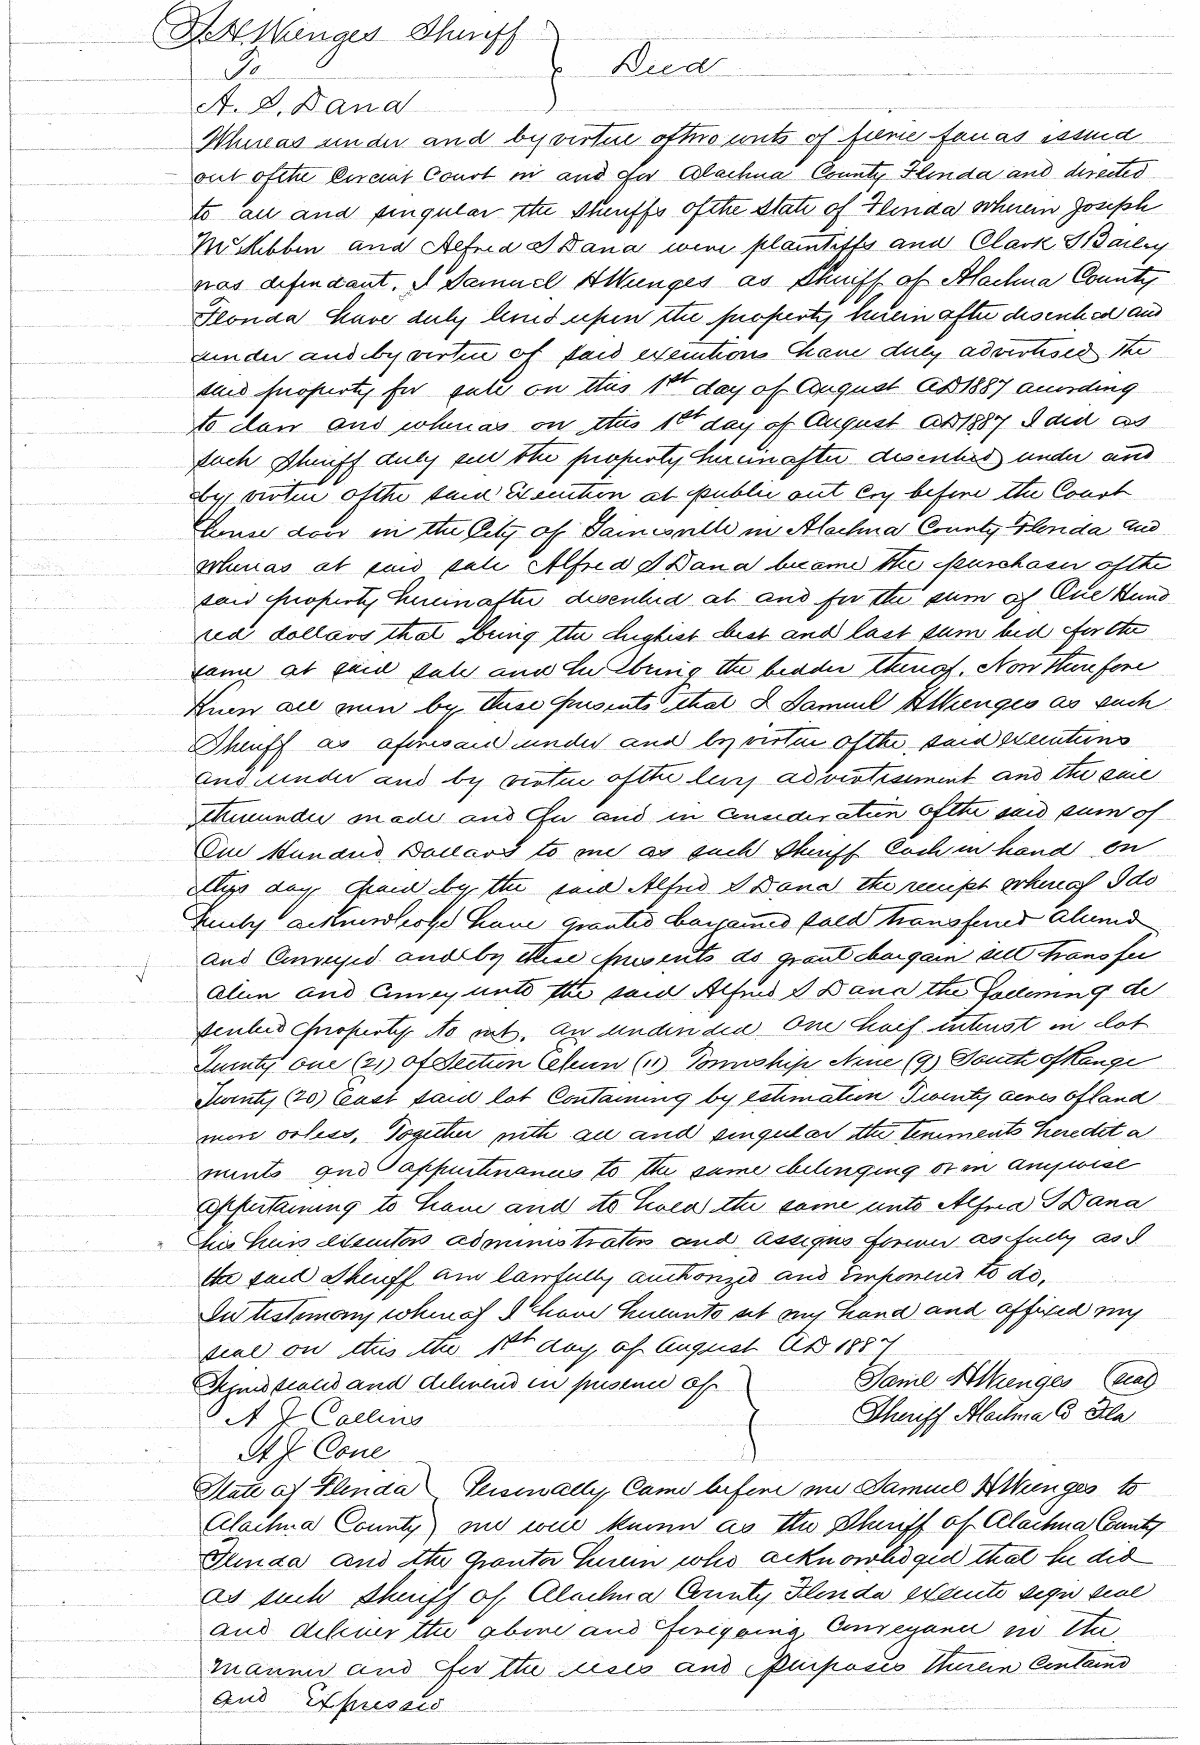 S. H. Wienges Sheriff
To
Deed
A. S. Dana
Whereas under and by virtue of two writs of fierie facias issued
out of the Circuit Court in and for Alachua County Florida and directed
to all and singular the Sheriffs of the State of Florida wherein Joseph
McKibbin and Alfred S Dana were plaintiffs and Clark S Bailey
was defendant. I Samuel H Wienges as Sheriff of Alachua County
Florida have duly levied upon the property herein after described and
under and by virtue of said executions have duly advertised the
said property for sale on this 1st day of August AD 1887 according
to law and whereas on this 1st day of August AD 1887 I did as
such Sheriff duly sell the property hereinafter described under and
by virtue of the said Execution at public out cry before the Court
house door in the City of Gainesville in Alachua County Florida and
whereas at said sale Alfred S Dana became the purchaser of the
said property hereinafter described at and for the sum of One Hund
red dollars that being the highest best and last sum bid for the
same at said sale and he being the bidder thereof. Now therefore
Know all men by these presents that I Samuel H Wienges as such
Sheriff as aforesaid under and by virtue of the said executions
and under and by virtue of the levy advertisement and the sale
thereunder made and for and in consideration of the said sum of
One Hundred Dollars to me as such Sheriff Cash in hand on
this day paid by the said Alfred S Dana the receipt whereof I do
hereby acknowledge have granted bargained sold transferred aliened
and Conveyed and by these presents do grant bargain sell transfer
alien and Convey unto the said Alfred S Dana the following de
scribed property to wit, an undivided One half interest in lot
Twenty one (21) of Section Eleven (11) Township Nine (9) South of Range
Twenty (20) East said lot Containing by estimation Twenty acres of land
more or less, Together with all and singular the tenements heredita
ments and appurtenances to the same belonging or in anywise
appertaining to have and to hold the same unto Alfred S Dana
his heirs executors administrators and assigns forever as fully as I
the said Sheriff am lawfully authorized and Empowered to do,
In testimony whereof I have hereunto set my hand and affixed my
seal on this the 1st day of August AD 1887
Signed sealed and delivered in presence of
Saml H Wienges (seal)
A J Collins
Sheriff Alachua Co Fla
H J Cone
State of Florida Personally Came before me Samuel H Wienges to
Alachua County me well known as the Sheriff of Alachua County
Florida and the Grantor herein who acknowledged that he did
as such Sheriff of Alachua County Florida execute sign seal
and deliver the above and foregoing Conveyance in the
manner and for the uses and purposes therein Contained
and Expressed